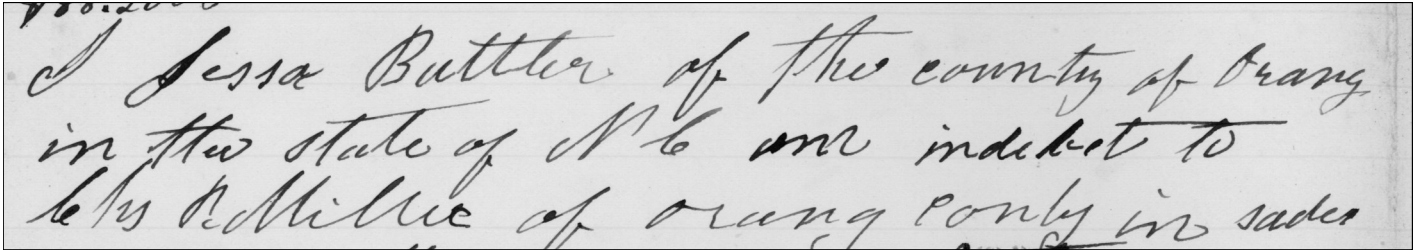 I Jessa Buttler of the county of Orang
in the state of N C am indebet to
Chs R Millie of orang conty in sades